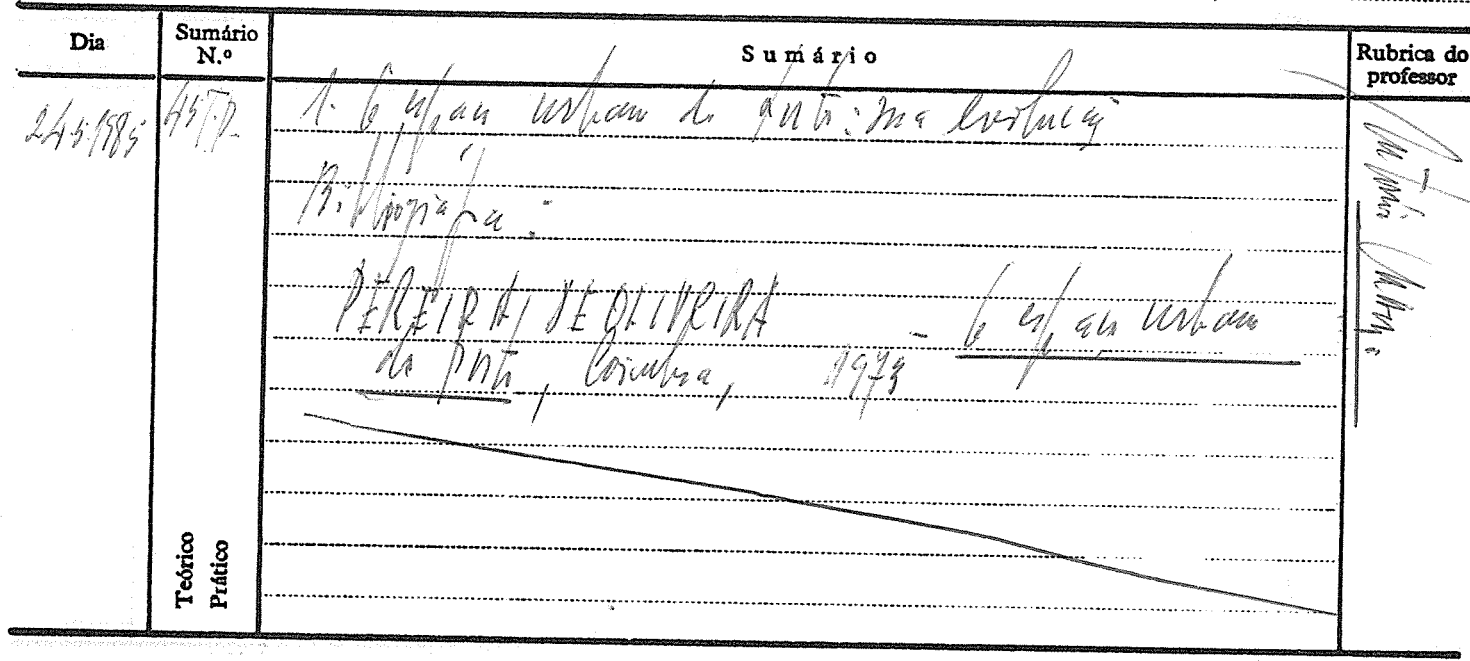 Dia
Sumário N.º
Sumário
Rubrica do professor
24.5.1985
45 T.P.
1. O espaço urbano do Porto: sua evolução
Bibliografia:
PEREIRA DE OLIVEIRA - O espaço urbano
do Porto, Coimbra, 1973
Teórico
Prático